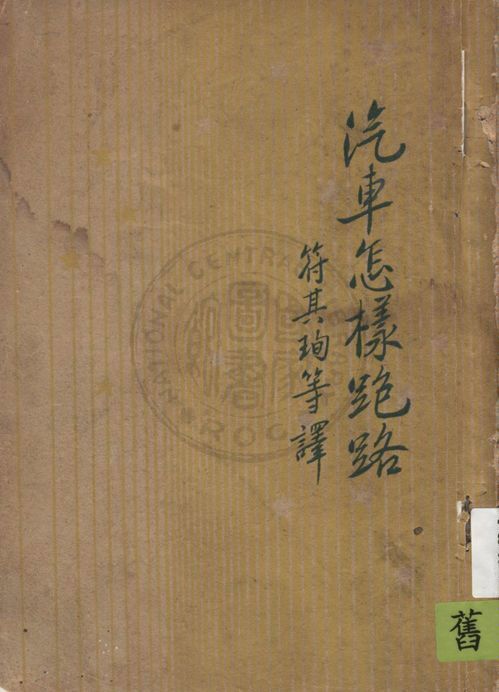 汽車怎樣跑路
符其珣等譯
NATIONAL CENTRAL
R.O.C.
舊